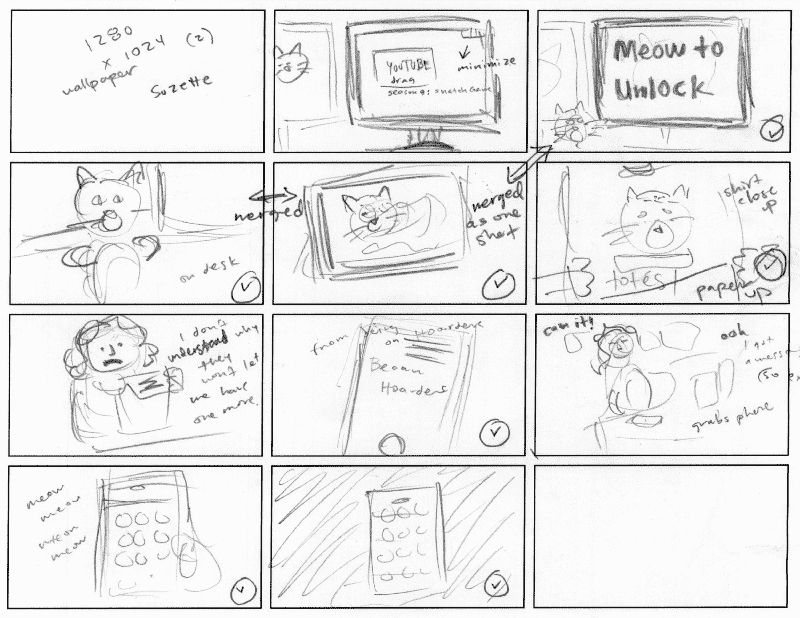 1280
x 1024 (2)
wallpaper
Suzette
YOUTUBE
drag
minimize
Meow to
Unlock
merged
on desk
merged
as one
shot
shirt
close
up
totes
paper
up
I don't
understand why
they
won't let
me have
one more.
from
on Hoarders
Hoarders
can it!
ooh
I got
grabs phone
meow
meow
meow
meow